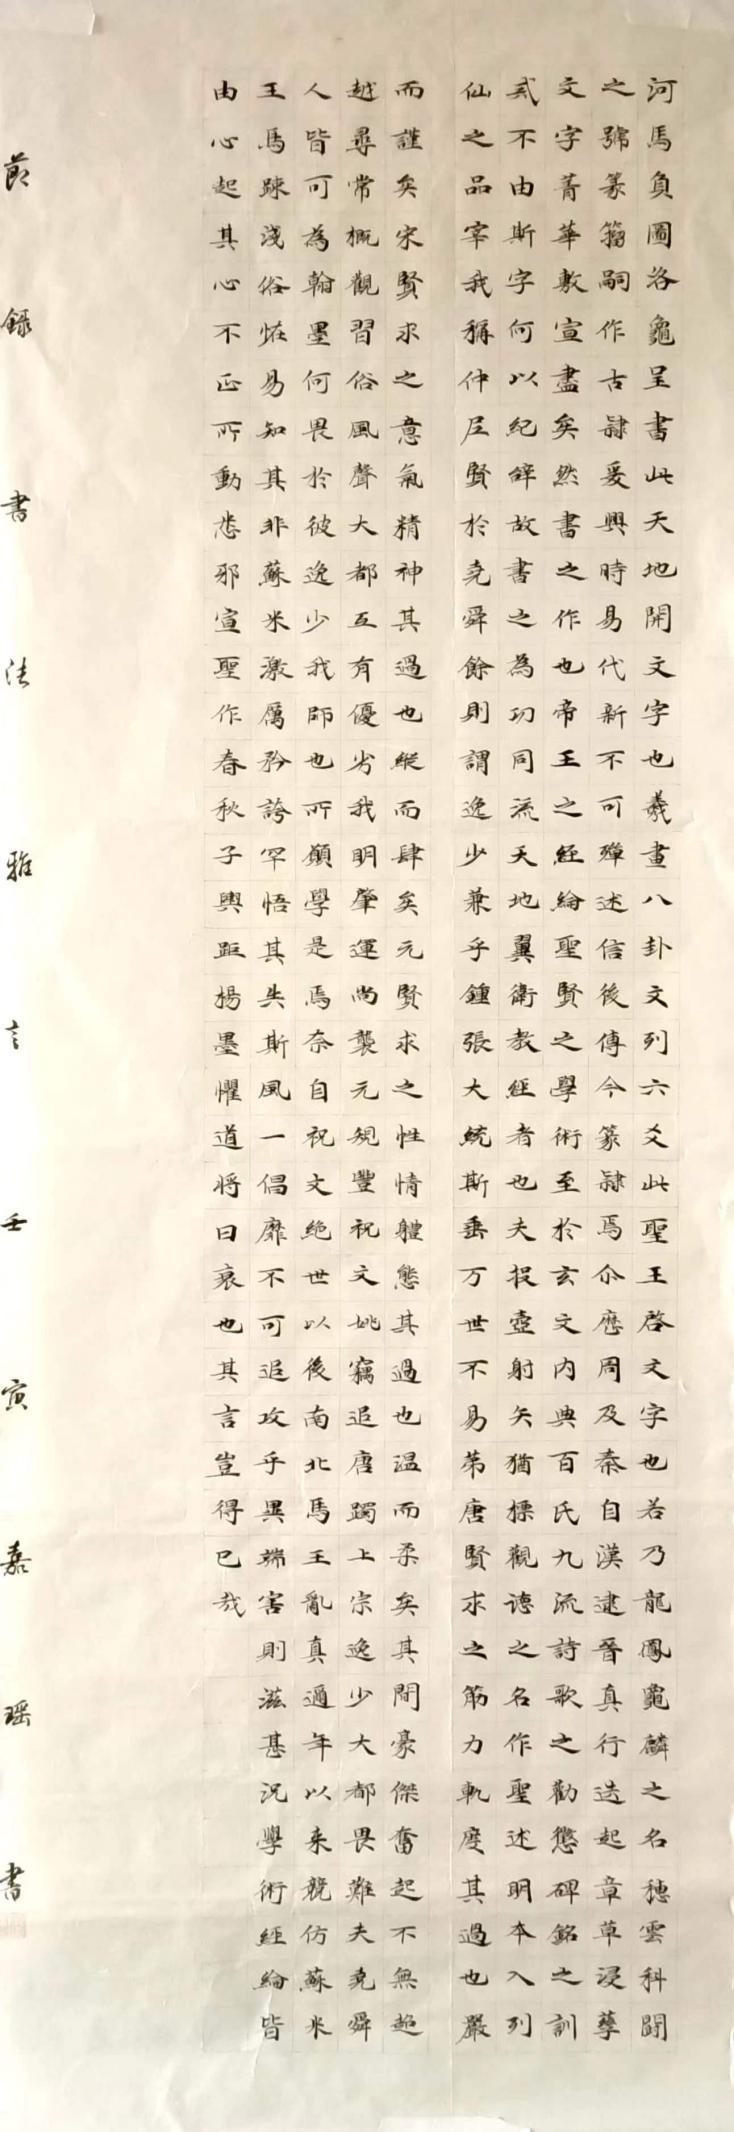 河馬負圖洛龜呈書此天地開文字也羲畫八卦文列六爻此聖王啓文字也若乃龍鳳龜麟之名穗雲科鬪
之號篆籀嗣作古隷爰興時易代新不可殫述信後傳今篆隷焉尒歷周及秦自漢逮晉真行迭起章草浸孳
文字菁華敷宣盡矣然書之作也帝王之經綸聖賢之學術至於玄文內典百氏九流詩歌之勸懲碑銘之訓
貳不由斯字何以紀辭故書之為功同流天地翼衛教經者也夫投壺射矢猶標觀德之名作聖述明本入列
仙之品宰我稱仲尼賢於堯舜餘則謂逸少兼乎鍾張大統斯垂万世不易第唐賢求之筋力軌度其過也嚴
而謹矣宋賢求之意氣精神其過也縱而肆矣元賢求之性情體態其過也温而柔矣其間豪傑奮起不無超
越尋常概觀習俗風聲大都互有優劣我明肇運尚襲元規豐祝文姚竊追唐躅上宗逸少大都畏難夫堯舜
人皆可為翰墨何畏於彼逸少我師也所願學是焉奈自祝文絶世以後南北馬王亂真邇年以来競仿蘇米
王馬踈淺俗恠易知其非蘇米激厲矜誇罕悟其失斯風一倡靡不可追攻乎異端害則滋甚況學術經綸皆
由心起其心不正所動悉邪宣聖作春秋子輿距揚墨懼道將日衰也其言豈得已哉
節錄書法雅言壬寅嘉瑶書